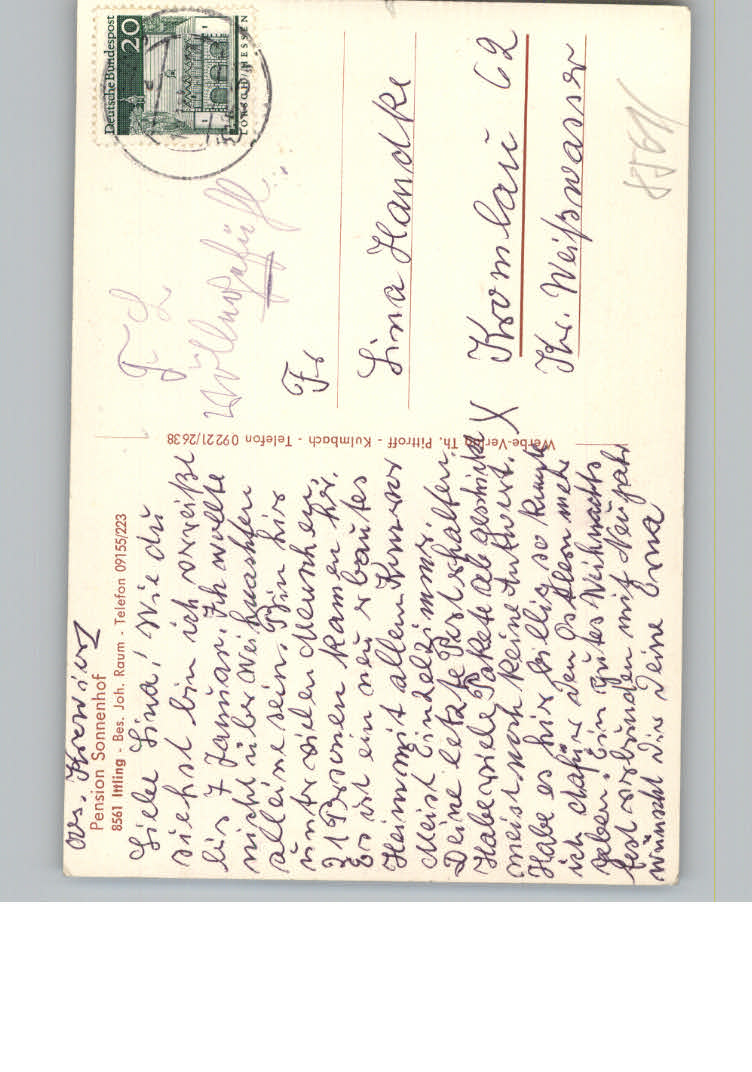 Abs. Krewinz
Pension Sonnenhof
8561 Ittling - Bes. Joh. Raum - Telefon 09155/223
Liebe Lina! Wie du
siehst bin ich verreißt
bis 7 Januar. Ich wollte
nicht über Weihnachten
alleine sein. Bin hir
unter vielen Menschen.
21 Personen kamen hir.
Es ist ein neu erbautes
Heim mit allem
Meist Einzelzimmer.
Deine letzte Post erhalten.
Habe viele Pakete abgeschickt
meist noch keine Antwort. X
Habe es hir billig so konnte
ich dafür den Ostleern mehr
geben. Ein gutes Weihnachts
fest verbunden mit Neujahr
wünscht dir Deine Erna
Werbe-Verlag Th. Pittroff - Kulmbach - Telefon 09221/2638
Deutsche Bundespost
20
LORSCH/HESSEN
Fr
Lina Handke
Kromlau 62
Kr. Weißwasser
8561/